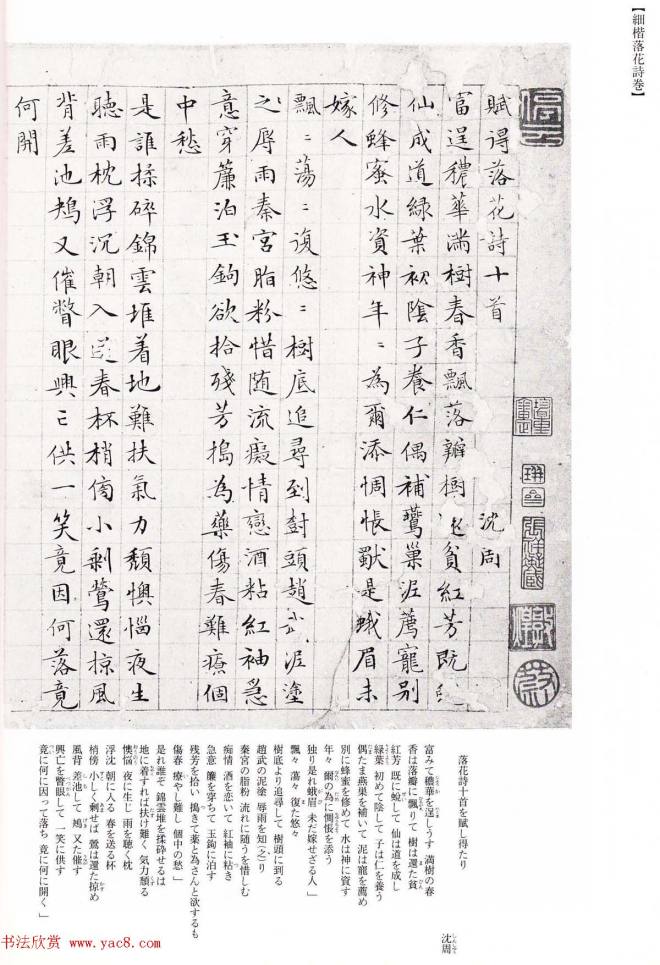 【細楷落花詩卷】
賦得落花詩十首
沈周
富逞穠華滿樹春香飄落瓣樹還貧紅芳既蛻
仙成道綠葉初陰子養仁偶補鷰巢泥薦寵別
修蜂蜜水資神年〻為爾添惆悵獸是蛾眉未
嫁人
飄〻蕩〻復悠〻樹底追尋到樹頭趙武泥塗
之辱雨秦宮脂粉惜随流癡情戀酒粘紅袖急
意穿簾泊玉鉤欲拾殘芳搗為藥傷春難療個
中愁
是誰揉碎錦雲堆着地難扶氣力頹懊惱夜生
聽雨枕浮沉朝入送春杯梢傍小剩鶯還掠風
背差池鴂又催瞥眼興亡供一笑竟因何落竟
何開
落花詩十首を賦し得たり
沈周
富みて穠華を逞しうす 満樹の春
香は落瓣に飄りて 樹は還た貧
紅芳 既に蛻して 仙は道を成し
緑葉 初めて陰して 子は仁を養う
偶たま燕巣を補いて 泥は寵を薦め
別に蜂蜜を修めて 水は神に資す
年々 爾の為に惆悵を添う
独り是れ蛾眉 未だ嫁せざる人」
飄々 蕩々 復た悠々
樹底より追尋して 樹頭に到る
趙武の泥塗 辱雨を知(之)り
秦宮の脂粉 流れに随うを惜しむ
痴情 酒を恋いて 紅袖に粘き
急意 簾を穿ちて 玉鉤に泊す
残芳を拾い 搗きて薬と為さんと欲するも
傷春 療やし難し 個中の愁」
是れ誰ぞ 錦雲堆を揉砕せるは
地に着すれば扶け難く 気力頽る
懊悩 夜に生じ 雨を聴く枕
浮沈 朝に入る 春を送る杯
梢傍 小しく剰せば 鶯は還た掠め
風背 差池して 鴂 又た催す
興亡を瞥眼して 一笑に供す
竟に何に因って落ち 竟に何に開く」
书法欣赏 www.yac8.com